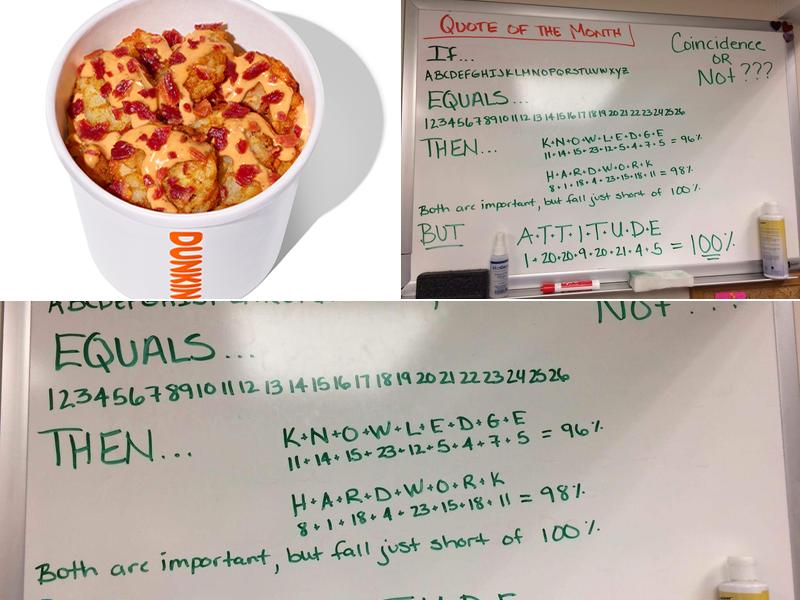 DUNKIN
QUOTE OF THE MONTH
Coincidence
OR
Not ???
If...
ABCDEFGHIJKLMNOPQRSTUVWXYZ
EQUALS...
1234567891011121314151617181920212223242526
THEN...
K+N+O+W+L+E+D+G+E
11+14+15+23+12+5+4+7+5 = 96%
H+A+R+D+W+O+R+K
8+1+18+4+23+15+18+11 = 98%
Both are important, but fall just short of 100%
BUT
A+T+T+I+T+U+D+E
1+20+20+9+20+21+4+5 = 100%
EQUALS...
1234567891011121314151617181920212223242526
THEN...
K+N+O+W+L+E+D+G+E
11+14+15+23+12+5+4+7+5 = 96%
H+A+R+D+W+O+R+K
8+1+18+4+23+15+18+11 = 98%
Both are important, but fall just short of 100%